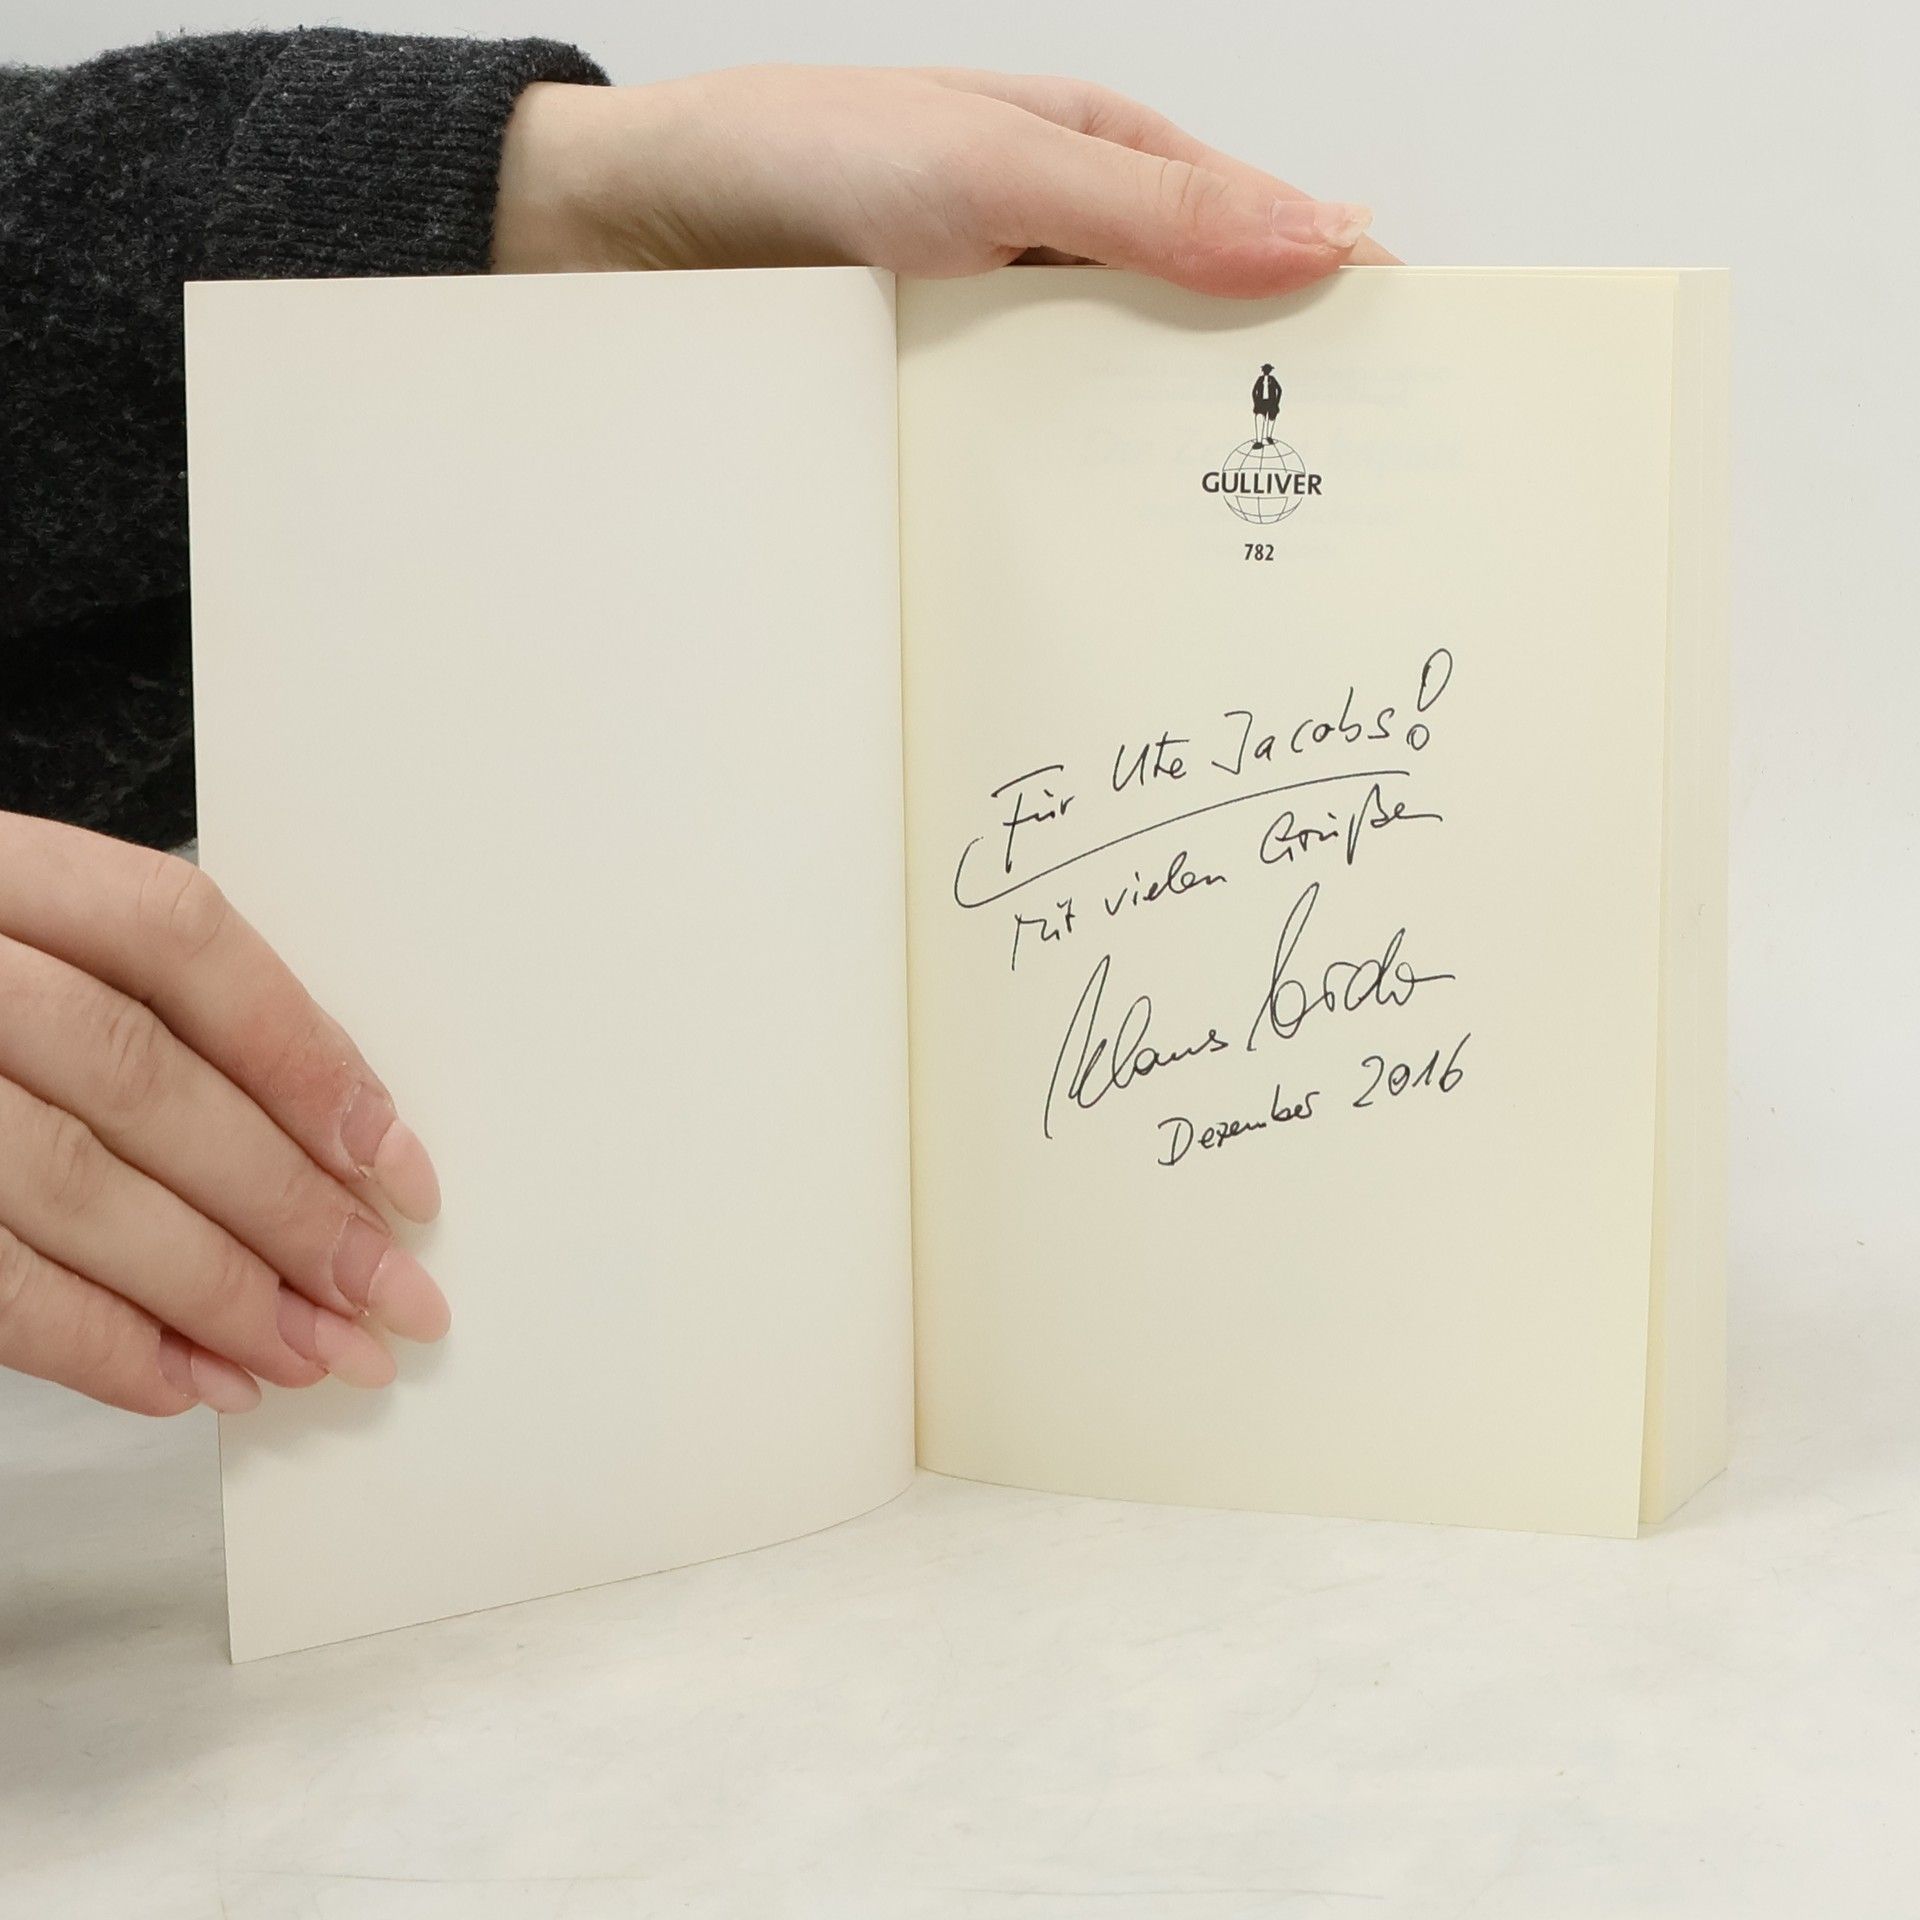 GULLIVER
782
Für Ute Jacobs!
Mit vielen Grüßen
Klaus Kordon
Dezember 2016